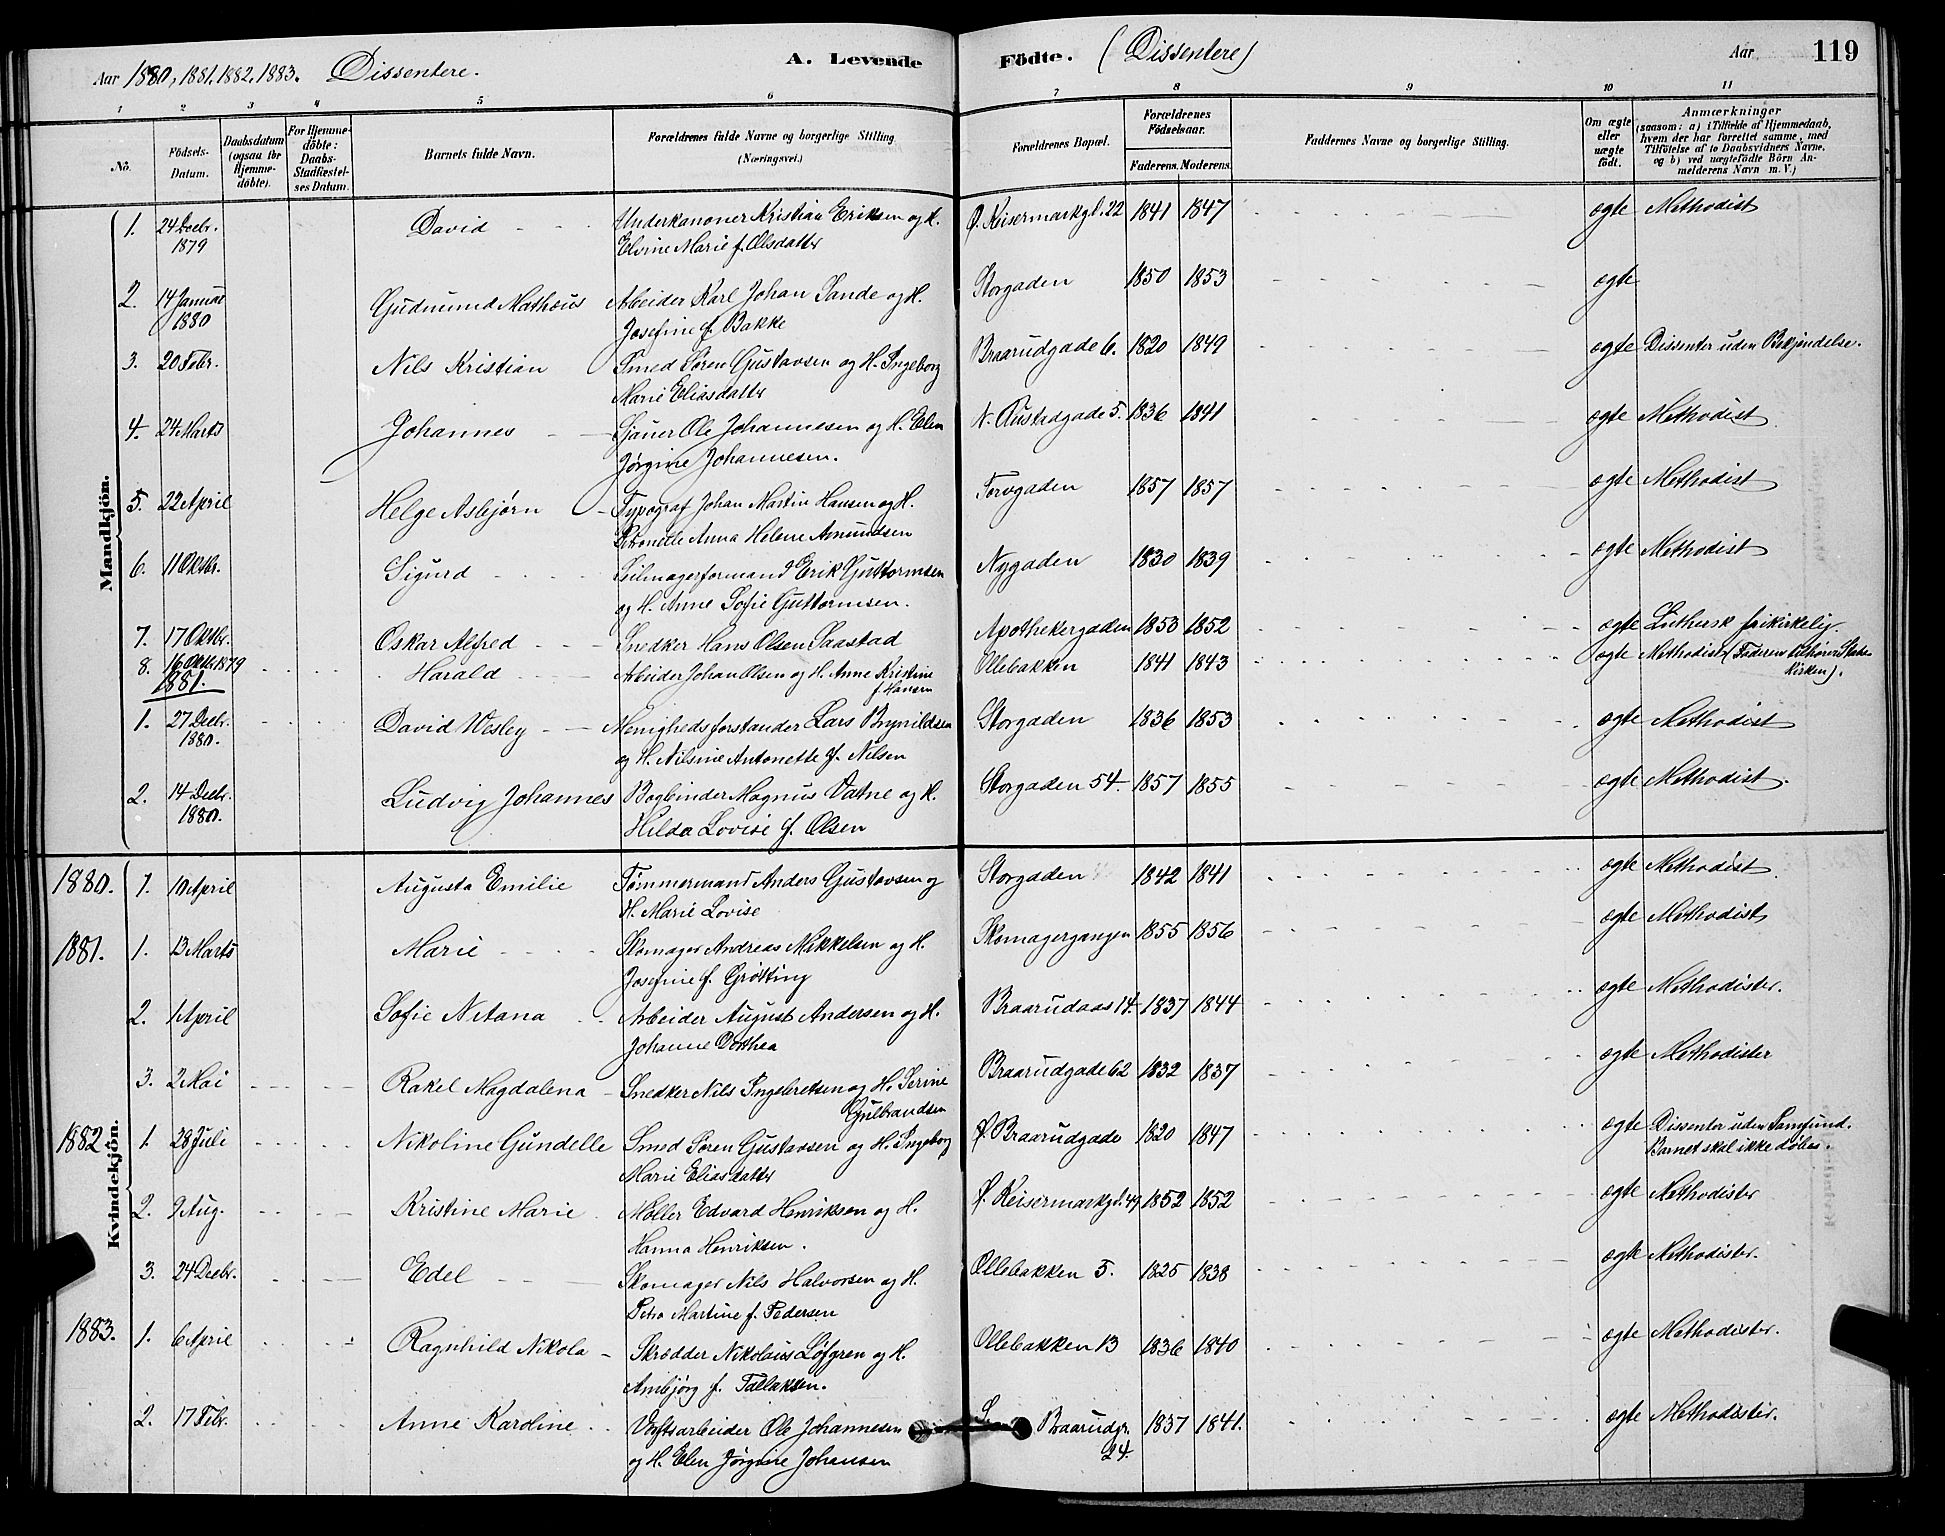 Aar 1880, 1881, 1882, 1883. Dissentere.
A. Levende
Födte. (Dissentere)
Aar
119
1 2 3 4 5 6 7 8 9 10 11
No.
Födsels-
Datum.
Daabsdatum
(ogsaa for
Hjemme-
döbte).
For Hjemme-
döbte:
Daabs-
Stadfæstel-
ses Datum.
Barnets fulde Navn.
Forældrenes fulde Navne og borgerlige Stilling
(Næringsvei.)
Forældrenes Bopæl.
Forældrenes
Födselsaar.
Faderens. Moderens.
Faddernes Navne og borgerlige Stilling.
Om ægte
eller
uægte
födt.
Anmærkninger
(saasom: a) i Tilfælde af Hjemmedaab,
hvem der har forrettet samme, med
Tilföielse af to Daabsvidners Navne,
og b) ved uægtefödte Börn An-
melderens Navn m. V.)
Mandkjön.
1. 24 Decbr. 1879 David Underkanoner Kristian Eriksen og H. Ø. Keisermarkgd. 22 1841 1847 ægte Methodist
Elvine Marie f. Olsdatter
2. 14 Januar 1880 Gudmund Mathæus Arbeider Karl Johan Sande og H. Storgaden 1850 1853 ægte
Josefine f. Bakke
3. 20 Febr. Nils Kristian Smed Søren Gustavsen og H. Ingeborg Braarudgade 6. 1820 1849 ægte Dissenter uden Bekjendelse.
Marie Eliasdatter
4. 24 Marts Johannes Sjauer Ole Johannesen og H. Elen N. Rustadgade 5. 1836 1841 ægte Methodist
Jørgine Johannesen.
5. 22 April Helge Asbjørn Typograf Johan Martin Hansen og H. Torvgaden 1857 1857 ægte Methodist
Petronelle Anna Helene Amundsen
6. 11 Oktbr. Sigurd Seilmagerformand Erik Guttormsen Nygaden 1830 1839 ægte Methodist
og H. Anne Sofie Guttormsen.
7. 17 Oktbr. Oskar Alfred Snedker Hans Olsen Saastad Apothekergaden 1853 1852 ægte Luthersk frikirkelig.
8. 16 Oktbr 1879 Harald Arbeider Johan Olsen og H. Anne Kristine Ollebakken 1841 1843 ægte Methodist (Faderen tilhører Stats-
f. Hansen
kirken).
1881.
1. 27 Decbr. 1880. David Wesley Menighedsforstander Lars Brynildsen Storgaden 1836 1853 ægte Methodist
og H. Nilsine Antonette f. Nilsen
2. 14 Decbr. 1880. Ludvig Johannes Bogbinder Magnus Vatne og H. Storgaden 54. 1857 1855 ægte Methodist.
Hilda Lovise f. Olsen
Kvindekjön.
1880. 1. 10 April Augusta Emilie Tømmermand Anders Gustavsen og Storgaden 1842 1841 ægte Methodist
H. Marie Lovise
1881. 1. 13 Marts Marie Skomager Andreas Mikkelsen og H. Skomagergangen 1855 1856 ægte Methodist
Josefine f. Grøtting
2. 1 April Sofie Netana Arbeider August Andersen og H. Braarudaas 14. 1837 1844 ægte Methodister.
Johanne Dorthea
3. 2 Mai Rakel Magdalena Snedker Nils Ingebretsen og H. Serine Braarudgade 62 1832 1837 ægte Methodister
Gulbrandsen
1882 1. 28 Juli Nikoline Gundelle Smed Søren Gustavsen og H. Ingeborg Ø. Braarudgade 1820 1847 ægte Dissenter uden Samfund.
Marie Eliasdatter
Barnet skal ikke døbes.
2. 9 Aug. Kristine Marie Møller Edvard Henriksen og H. Ø. Keisermarkgd. 49 1852 1852 ægte Methodister
Hanna Henriksen.
3. 24 Decbr. Edel Skomager Nils Halvorsen og H. Ollebakken 5. 1825 1838 ægte Methodister.
Petra Martine f. Pedersen
1883. 1. 6 April Ragnhild Nikola Skrædder Nikolaus Löfgren og H. Ollebakken 13 1836 1840 ægte Methodister.
Ambjørg f. Tallaksen.
2. 17 Febr. Anne Karoline Værftsarbeider Ole Johannesen S. Braarudgr. 24. 1837 1841. ægte Methodister.
og H. Elen Jørgine Johansen